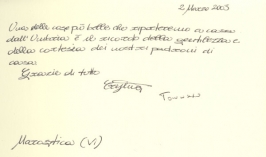 2 Marzo 2003
Una delle cose più belle che riporteremo a casa
dall'Umbria è il ricordo della gentilezza e
della cortesia dei nostri padroni di
casa.
Grazie di tutto
Marostica (VI)